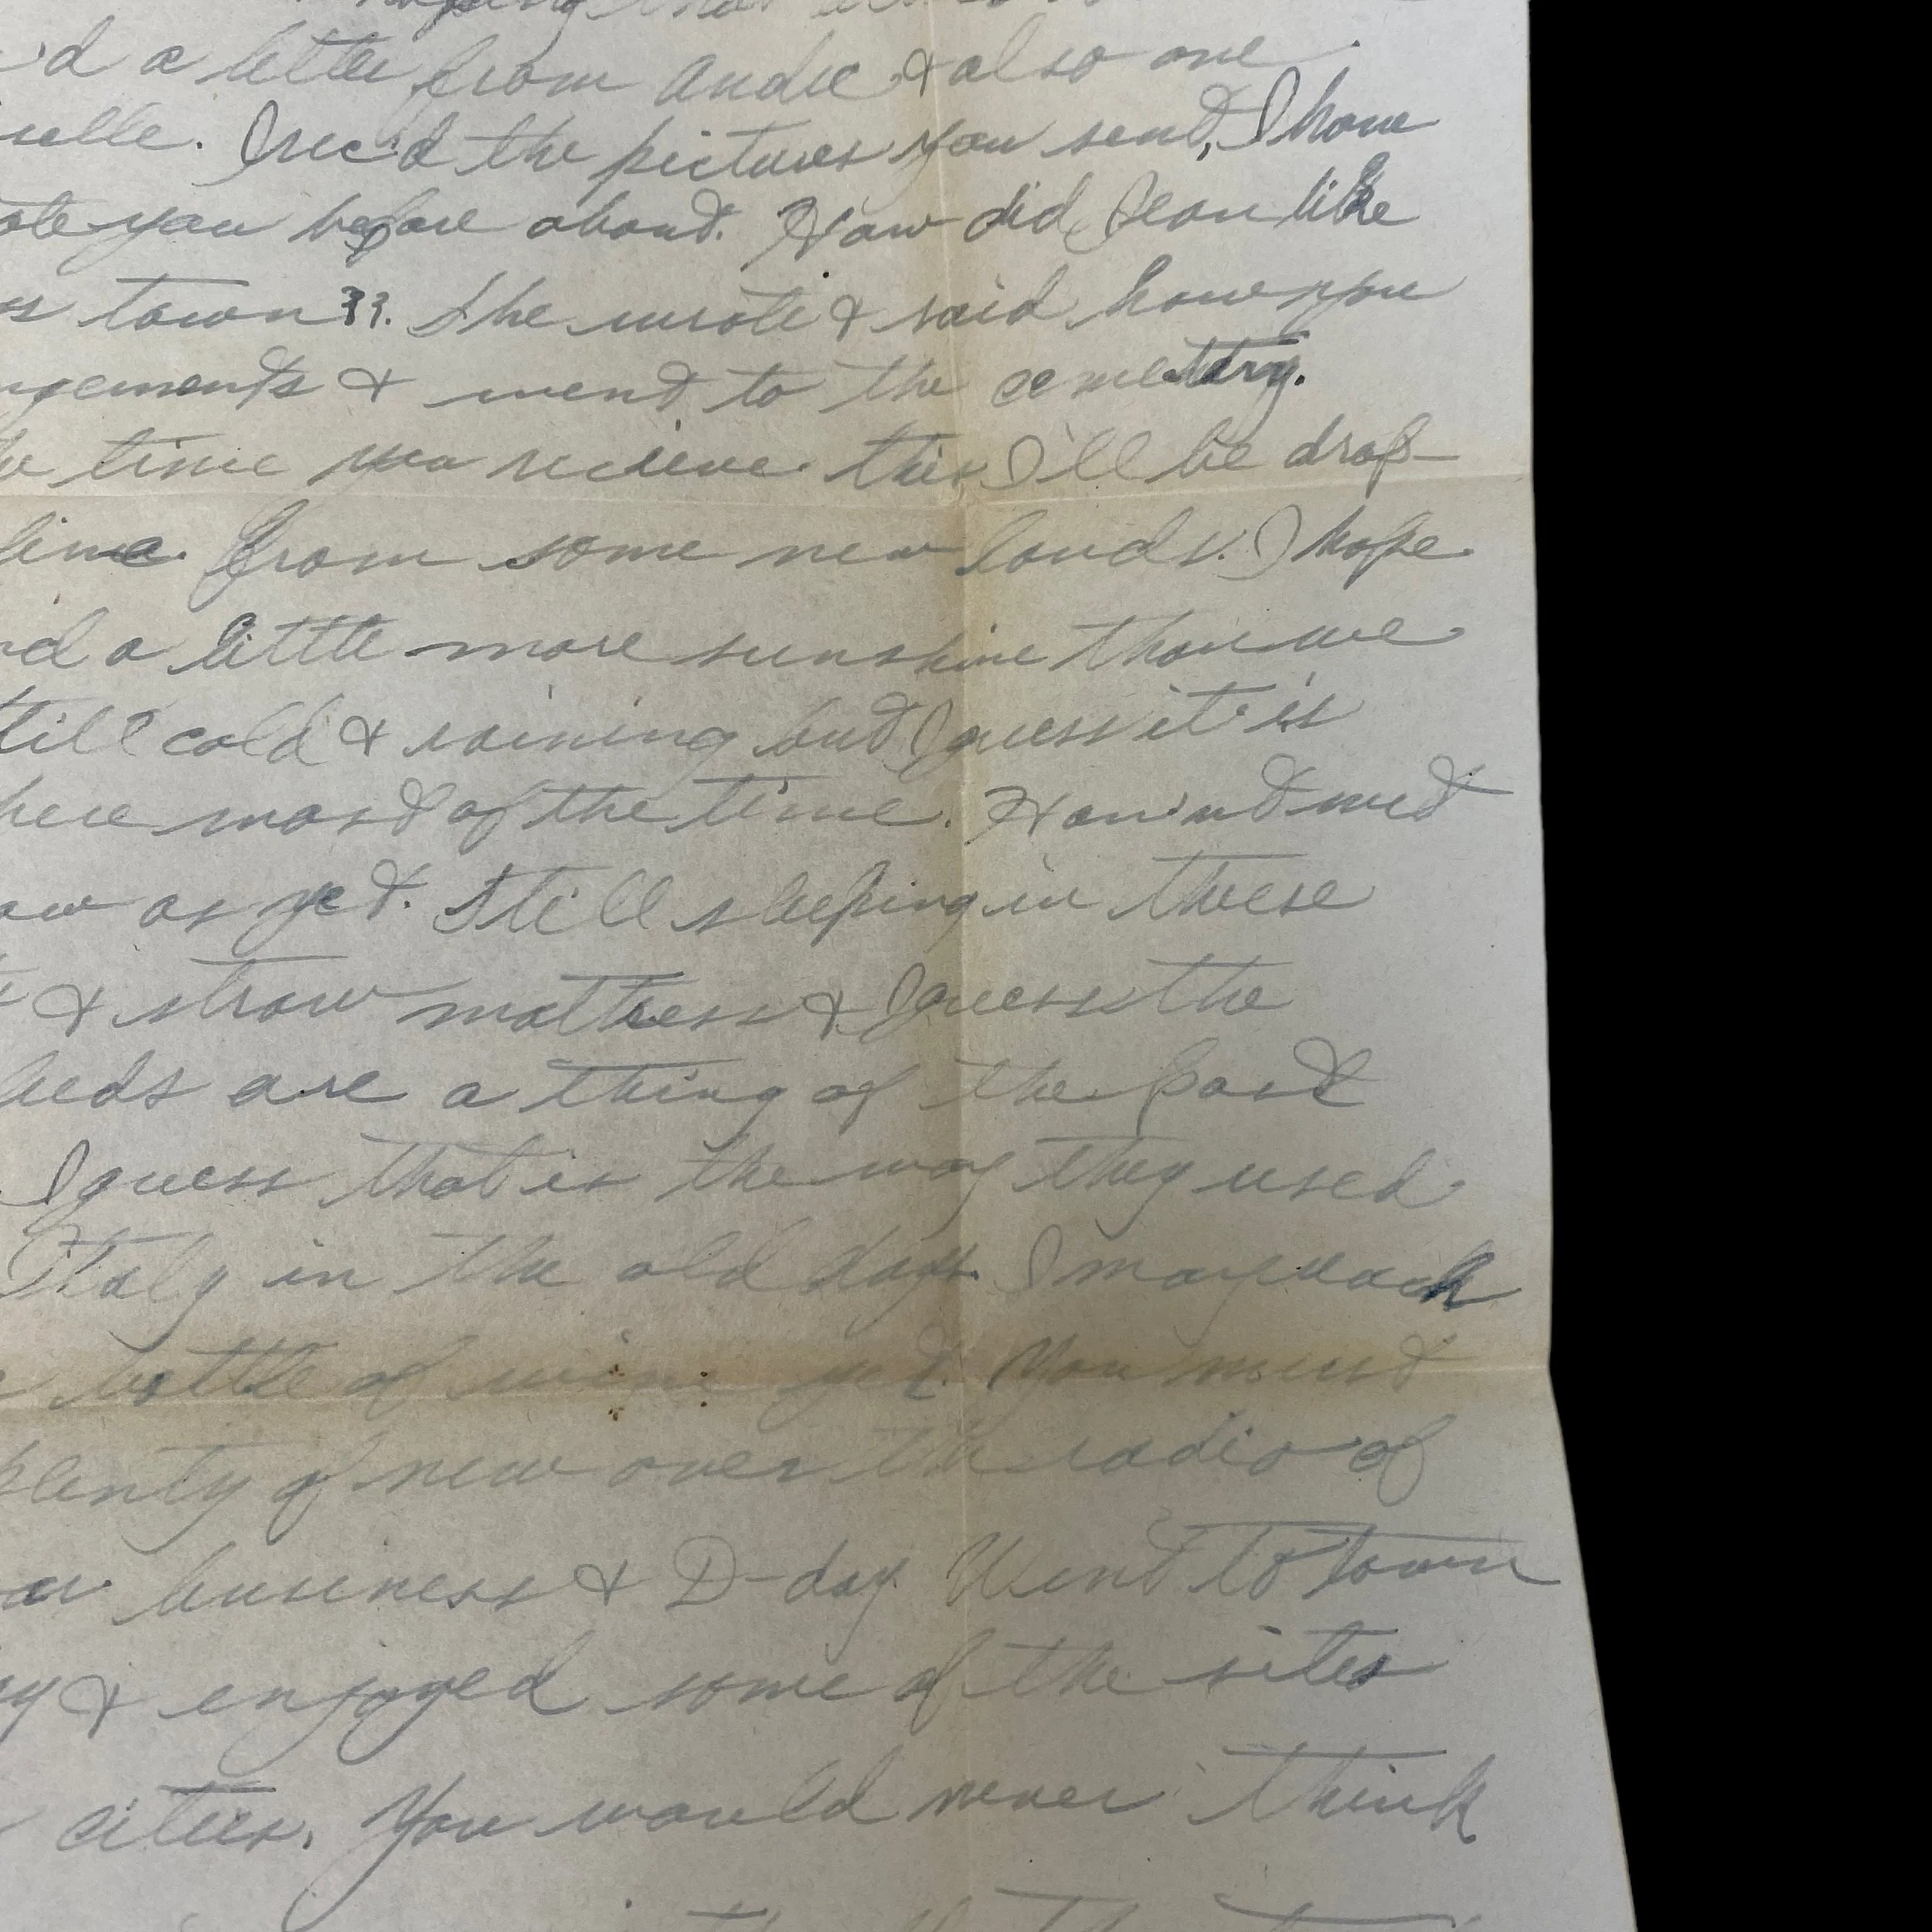 'd a letter from Andie & also one
elle. I rec'd the pictures you sent, I have
ote you before about. How did Jean like
town??. She wrote & said how you
ngements & went to the cemettry.
time you recieve this I'll be drop-
line. from some new lands. I hope
a little more sunshine than we
till cold & raining but I guess it is
here most of the time. Havind met
as yet. Still sleeping in these
& straw mattress & I guess the
beds are a thing of the past
I guess that is the way they used
Italy in the old days. I may reach
bottle of wine yet. You must
plenty of new over the radio of
business & D-day. Went to town
& enjoyed some of the sites
cities. You would never think